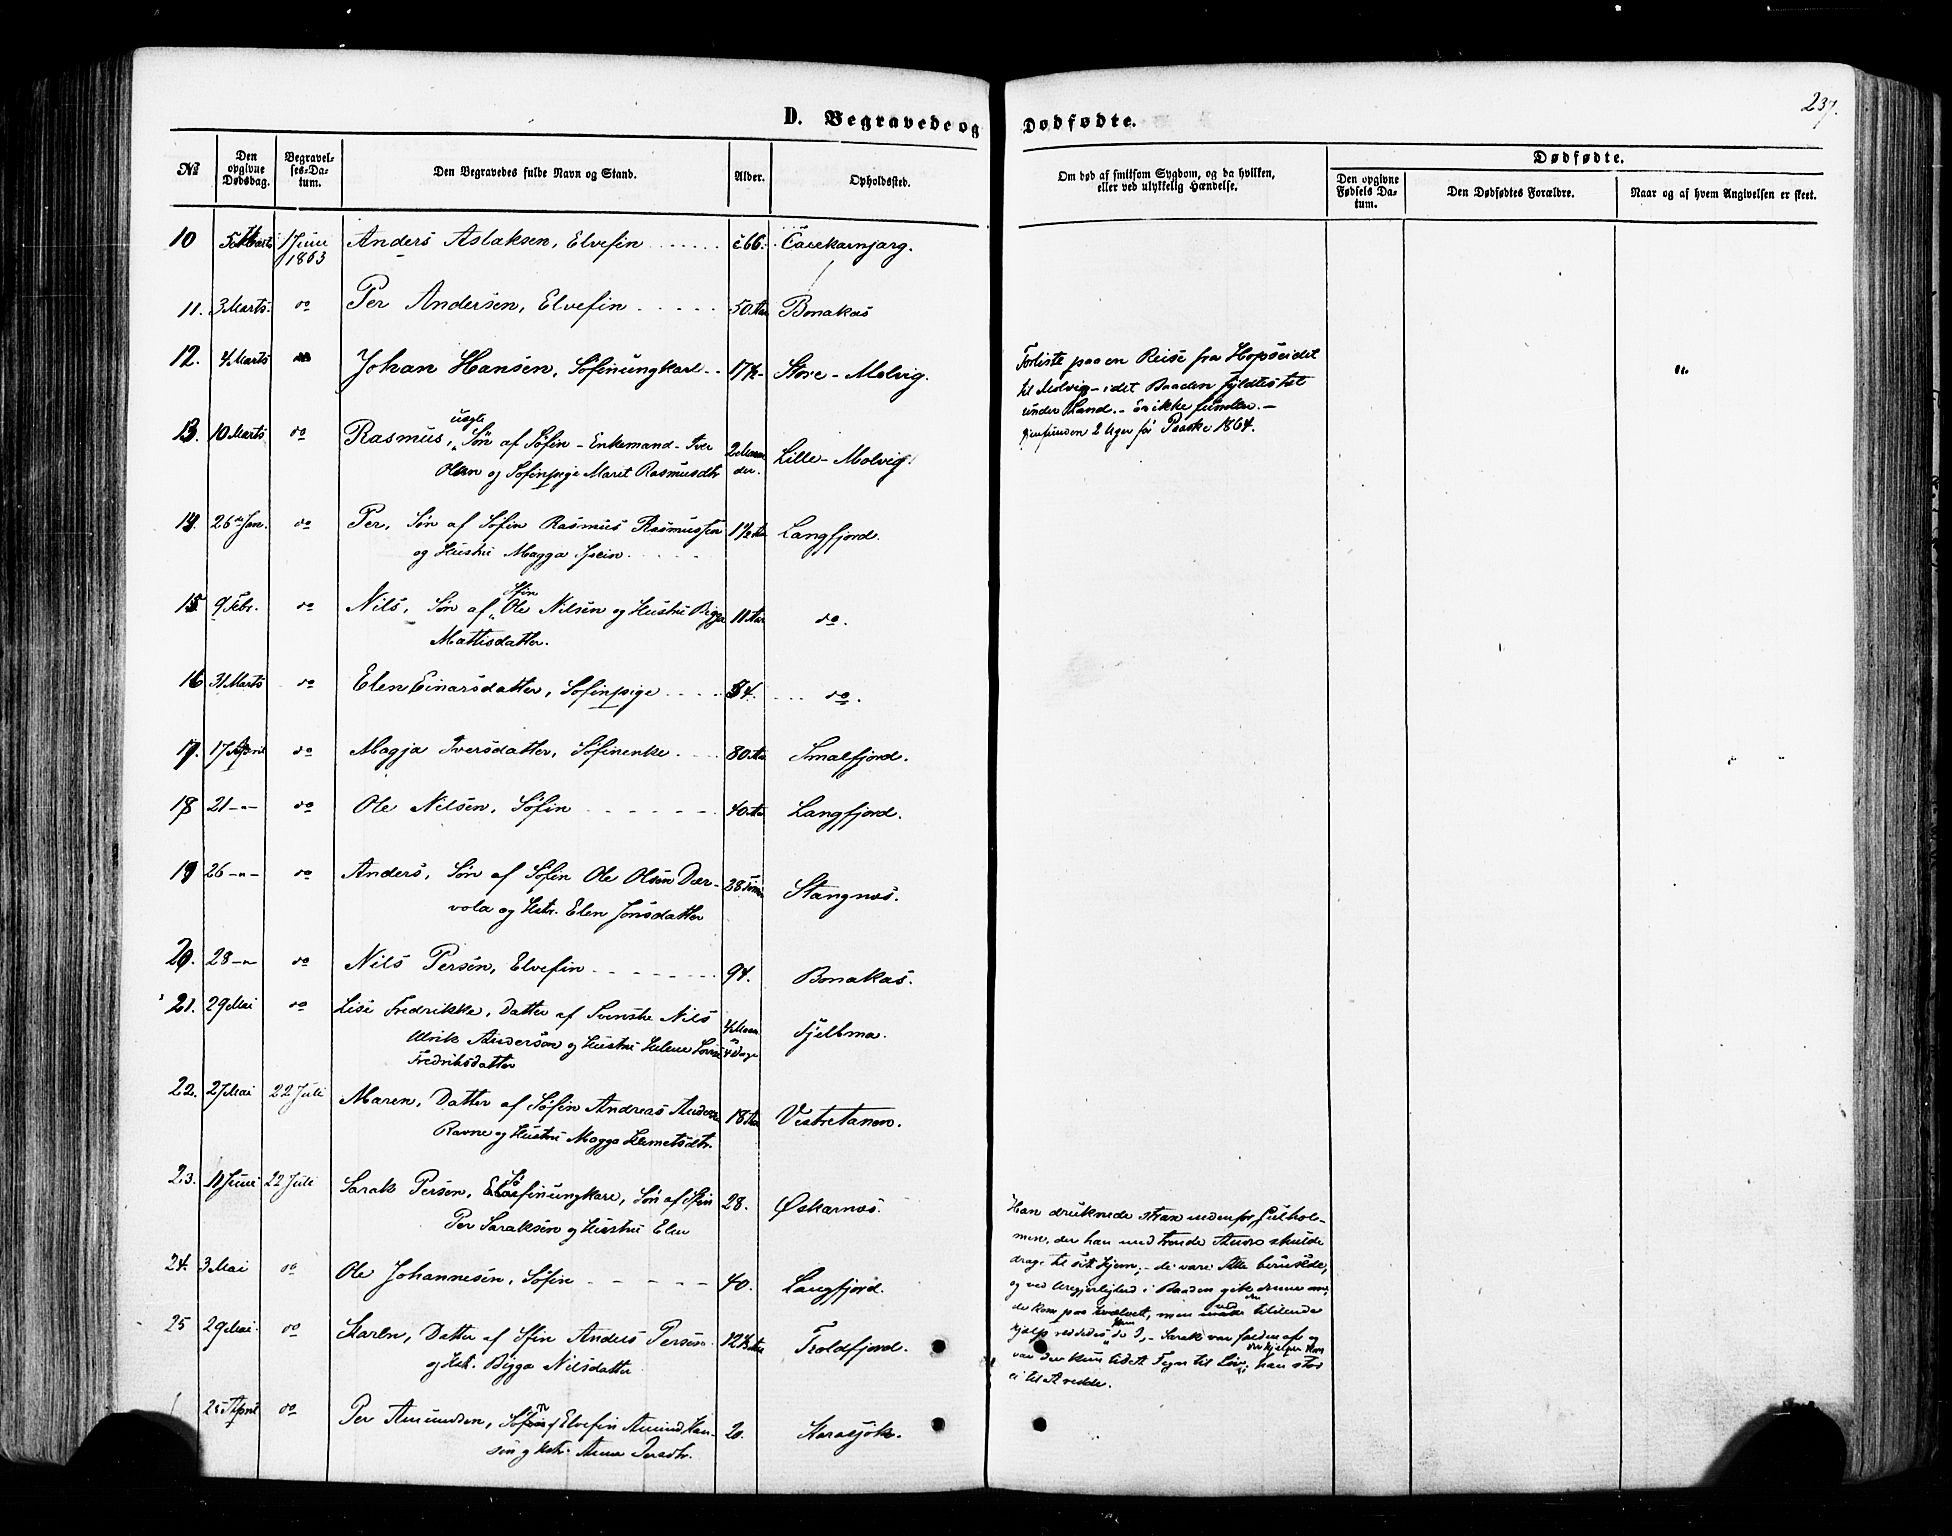 237.
D. Begravede og Dødfødte.
№
Den opgivne Dødsdag.
Begravelses-Datum.
Den Begravedes fulde Navn og Stand.
Alder.
Opholdssted.
Om død af smitsom Sygdom, og da hvilken, eller ved ulykkelig Hændelse.
Dødfødte.
Den opgivne Fødsels Datum.
Den Dødfødtes Forældre.
Naar og af hvem Angivelsen er skeet.
10 5 Marts 1 Juni 1863 Anders Aslaksen, Elvefin c 66.
11. 3 Marts. do Per Andersen, Elvefin 50 Aar Bonakas
12. 4 Marts do Johan Hansen, Søfinungkarl 17½ Store-Molvig.
Forliste paa en Reise fra Hopseidet
til Molvig - idet Baaden fyldtes tæt
under Land. - er ikke funden. -
gjenfunden 2 Uger før Paaske 1864.
13. 10 Marts do Rasmus, uægte Søn af Søfin-Enkemand-Iver 2 Maaneder. Lille-Molvig.
Olsen og Søfinpige Maret Rasmusdtr
14. 26de Jan. do Per, Søn af Søfin Rasmus Rasmussen 1½ Aar Langfjord.
og Hustru Magga
15 9 Febr. do Nils, Søn af Sfin Ole Nilsen og Hustru Bigga 11 Aar do.
Mattisdatter.
16 31 Marts do Elen Einarsdatter, Søfinpige 54. do.
17. 17 April do Magja Iversdatter, Søfinenke 80 Aar Smalfjord.
18 21 -"- do Ole Nilsen, Søfin 40 Aar Langfjord.
19 26 -"- do Anders, Søn af Søfin Ole Olsen Dær- 28 Stangnæs.
vola og Hstr. Elen Jonsdatter
20. 28 -"- do Nils Persen, Elvefin 94. Bonakas.
21. 29 Mai do Lise Fredrikke, Datter af Svenske Nils 4 Maan 4 Dage Fjelbma.
Ulrik Anderson og Hustru Helene Lovise
Fredriksdatter
22. 27 Mai 22 Juli Maren, Datter af Søfin Andreas Anders. 18 Aar Vestretanen.
Ravne og Hustru Magga Klemetsdtr.
23. 11 Juni 22 Juli Sarak Persen, Søfinungkarl, Søn af Sfin 28. Øskarnæs.
Per Saraksen og Hustru Elen
Han druknede strax udenfor Gulhol-
men, der han med trende Andre skulde
drage til sit Hjem; - de vare Alle berusede,
og ved Uregjerlighed i Baaden gik denne om,
de kom paa hvælvet, men ved tililende
Hjælp reddedes de 3, - Sarak var falden af og
var der kun lidet Tegn til Liv; han stod
ei til at redde.
24. 3 Mai do Ole Johannesen, Søfin 40. Langfjord.
25 29 Mai. do Karen, Datter af Sfin Anders Persen 12½ Aar Troldfjord.
og Hstr. Bigga Nilsdatter
25 April do Per Amundsen, Søn af Elvefin Amund Han- 20. Karasjok.
sen og Hstr. Anna